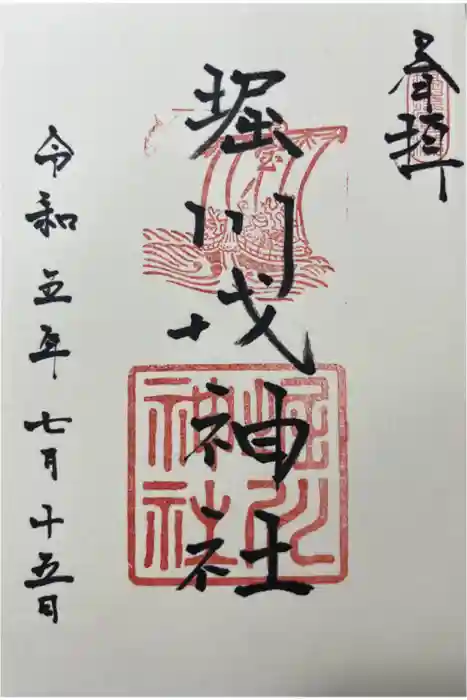 奉拝
堀川戎神社
堀川
神社
令和五年七月十五日